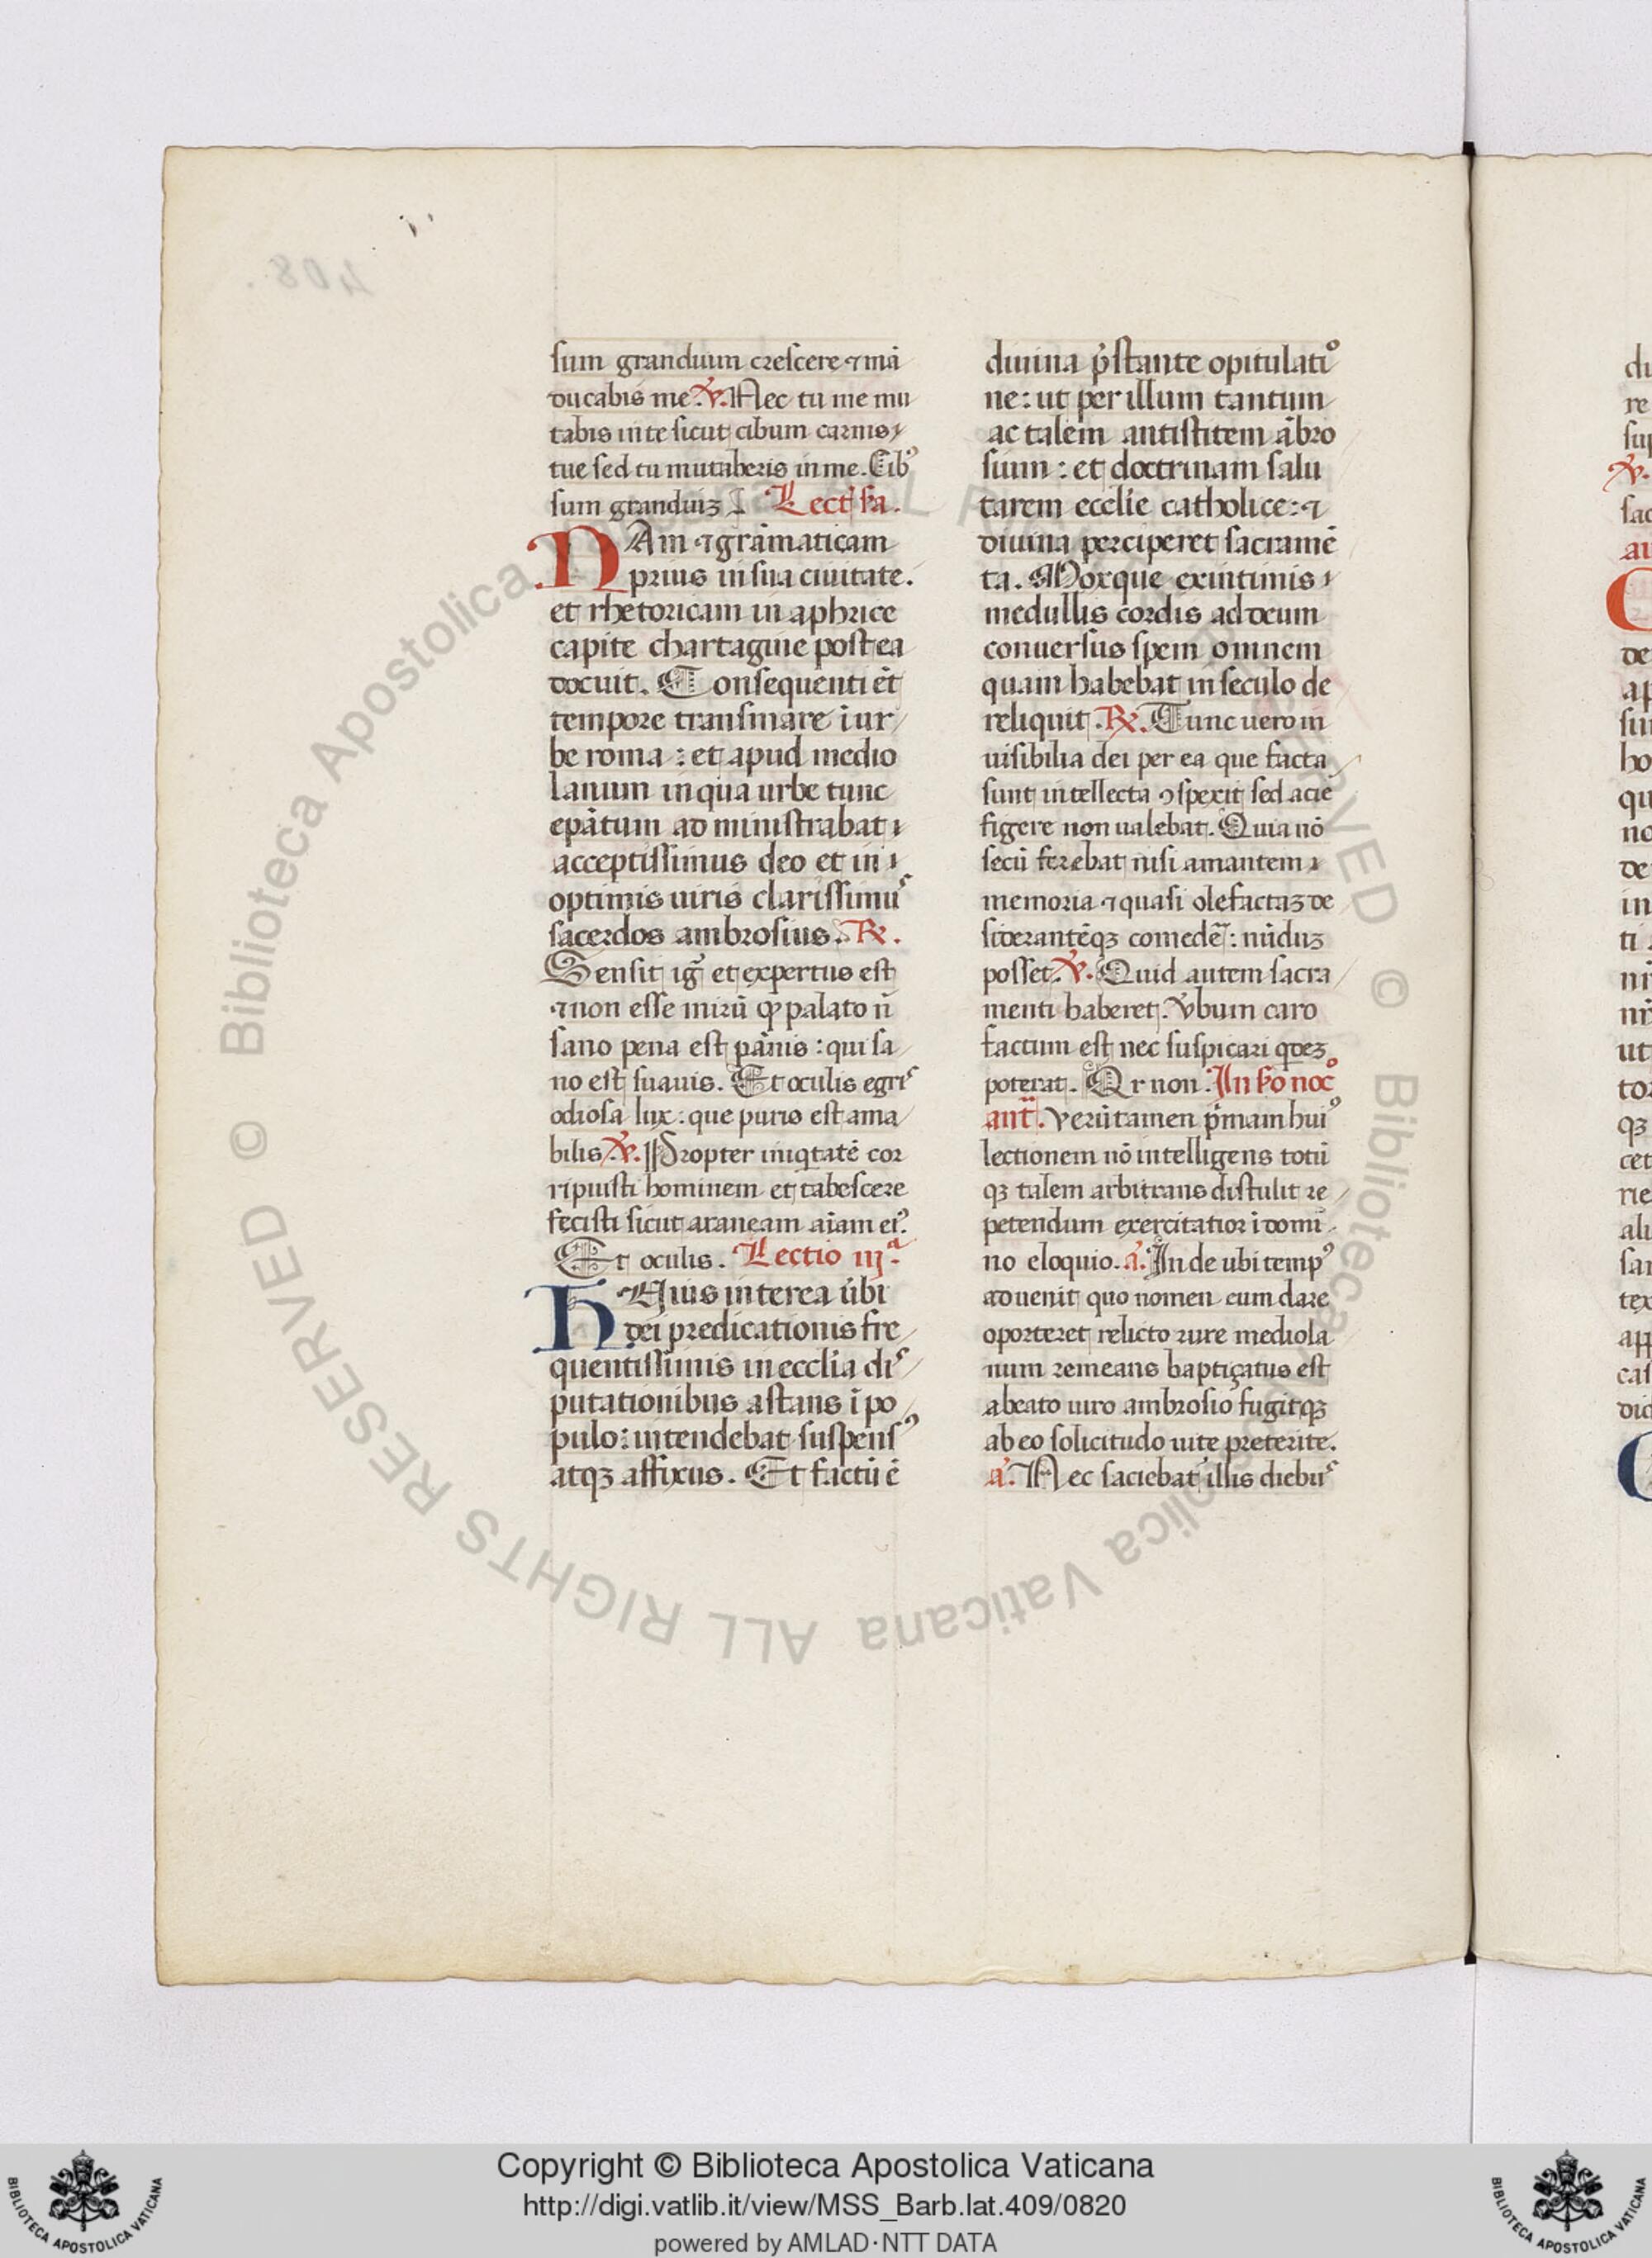 408.
sum grandium crescere ⁊ mā
ducabis me. ℣. Nec tu me mu
tabis in te sicut cibum carnis
tue sed tu mutaberis in me. Cibꝰ
sum grandiuꝫ Lect scᷓa.
NAm ⁊ grāmaticam
prius in sua ciuitate.
et rhetoricam in aphrice
capite chartagine postea
docuit. Consequenti ēt
tempore transmare ī ur
be roma : et apud medio
lanum in qua urbe tunc
epātum administrabat
acceptissimus deo et in
optimis uiris clarissimus
sacerdos ambrosius. ℞.
Sensit ig̃ et expertus est
⁊ non esse mirū ꝙ palato ñ
sano pena est pānis : qui sa
no est suauis. Et oculis egris
odiosa lux : que puris est ama
bilis ℣. Propter iniqͥtatē cor
ripuisti hominem et tabescere
fecisti sicut araneam aīam eiꝰ.
Et oculis. Lectio iijᵃ.
HUius interea ūbi
dei predicationis fre
quentissimis in ecclīa dis
putationibus astans ī po
pulo : intendebat suspensꝰ
atqꝫ affixus. Et factū ē
diuina p̄stante opitulatiᵒ
ne : ut per illum tantum
ac talem antistitem ābro
sium : et doctrinam salu
tarem ecclīe catholice : ⁊
diuina perciperet sacramē
ta. Moxque ex intimis
medullis cordis ad deum
conuersus spem omnem
quam habebat in seculo de
reliquit. ℞. Tunc uero in
uisibilia dei per ea que facta
sunt intellecta ꝯspexit sed aciē
figere non ualebat. Quia nō
secū ferebat nisi amantem
memoria ⁊ quasi olefactaꝫ de
siderantēqꝫ comedē : nūduꝫ
posset. ℣. Quid autem sacra
menti haberet. Ūbum caro
factum est nec suspicari qdeꝫ
poterat. Qr non. In scᵒ nocᵒ
anť. Verūtamen pͥmam huiꝰ
lectionem nō intelligens totū
qꝫ talem arbitrans distulit re
petendum exercitatior ī domi
no eloquio. a. Inde ubi tempꝰ
aduenit quo nomen eum dare
oporteret relicto rure mediola
num remeans baptiçatus est
a beato uiro ambrosio fugitqꝫ
ab eo solicitudo uite preterite.
a. Nec saciebat illis diebus
© Biblioteca Apostolica Vaticana ALL RIGHTS RESERVED
Copyright © Biblioteca Apostolica Vaticana
http://digi.vatlib.it/view/MSS_Barb.lat.409/0820
powered by AMLAD·NTT DATA
BIBLIOTECA APOSTOLICA VATICANA
BIBLIOTECA APOSTOLICA VATICANA